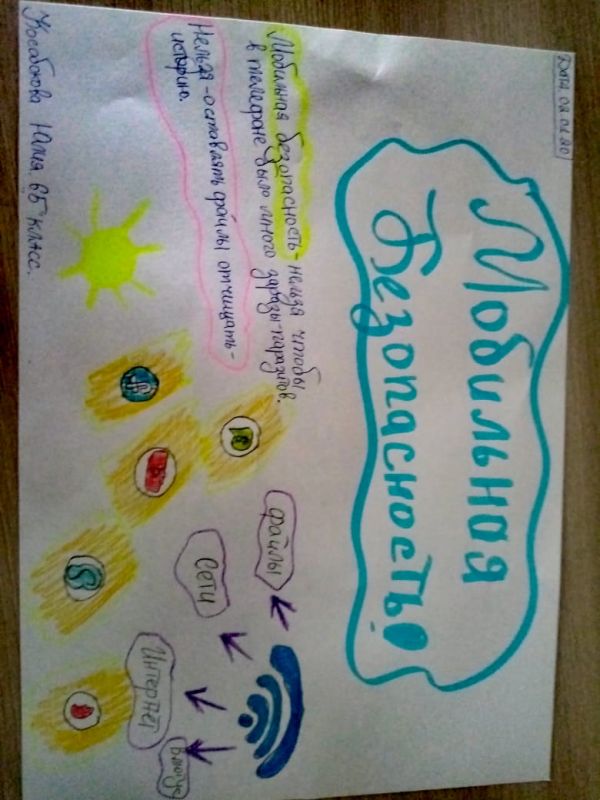 Дата 02.01.20
Мобильная
Безопасность!
Мобильная безопасность - нельзя чтобы
в телефоне было много заразы-паразитов.
Нельзя - оставлять файлы отчищать -
историю.
файлы
Сети
Интернет
Юлия 6Б класс.